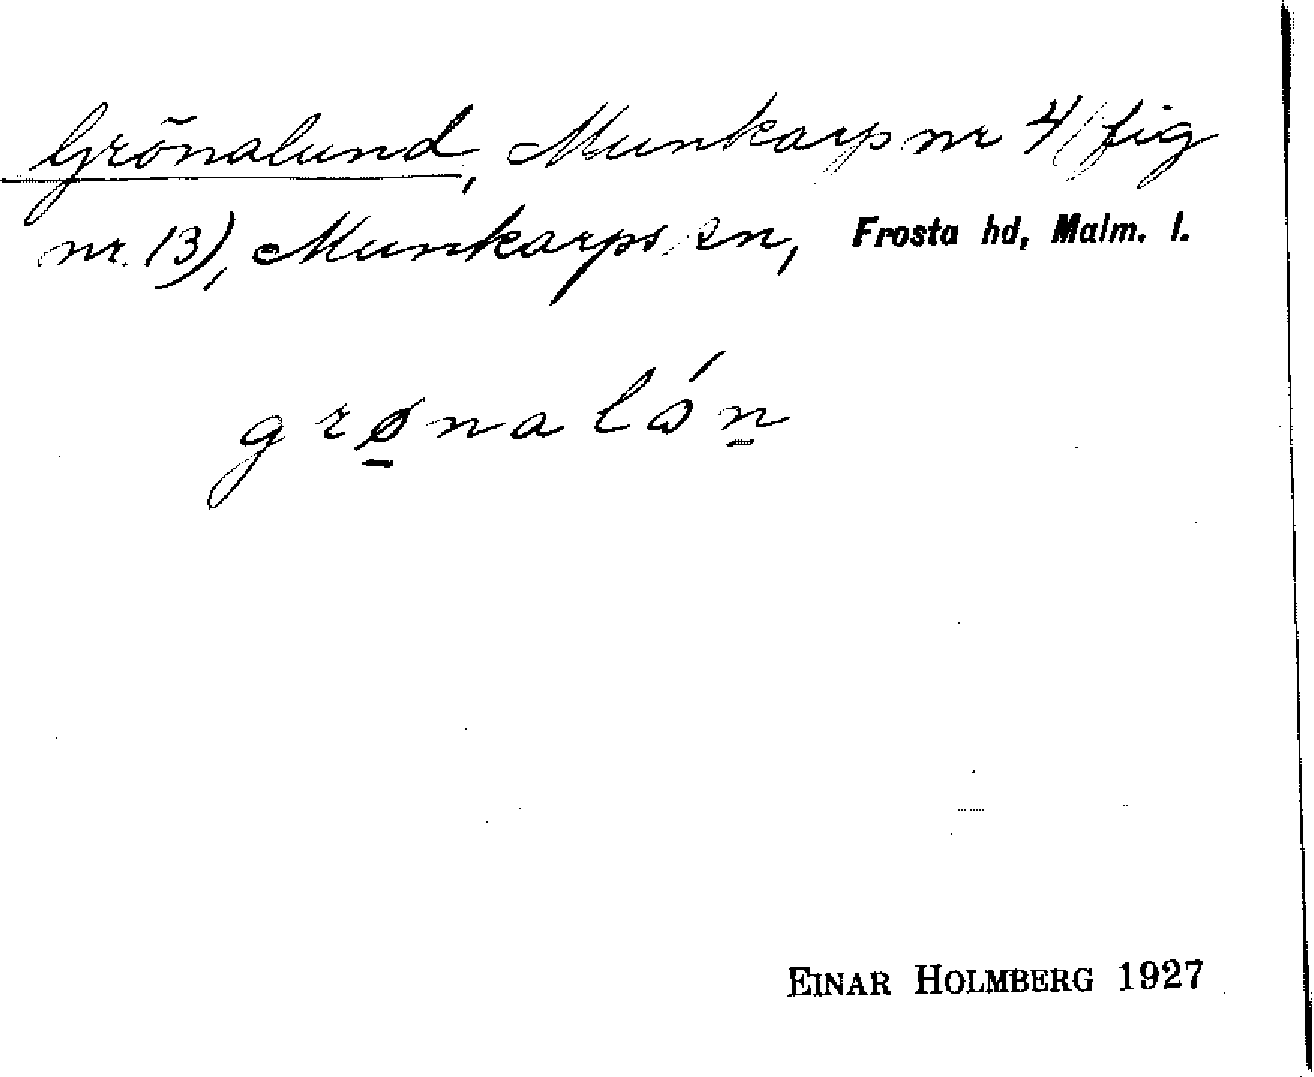 Grönalund, Munkarp nr 4 (fig
nr. 13), Munkarps sn, Frosta hd, Malm. l.
grø̱nalán̠
EINAR HOLMBERG 1927